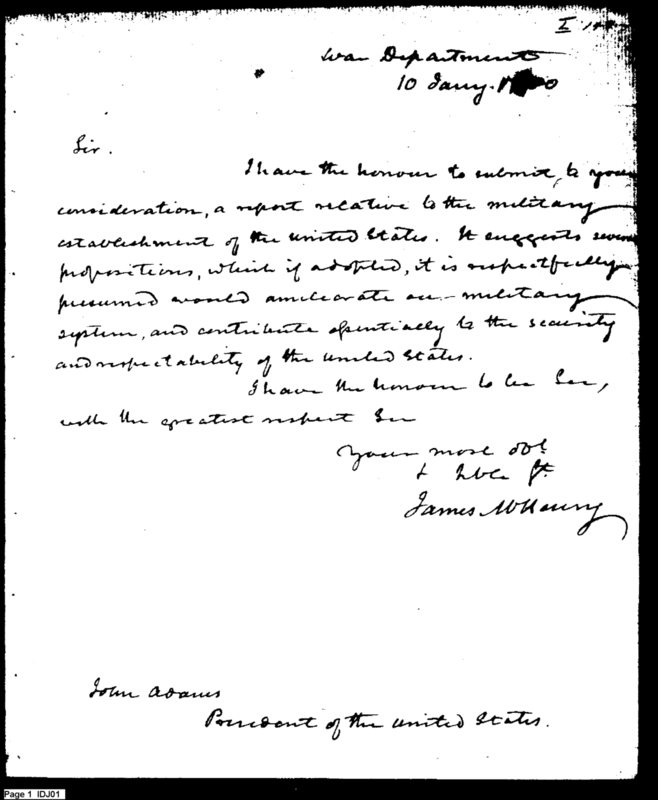 I
War Department
10 Jany.
Sir.
I have the honour to submit, to your
consideration, a report relative to the military
establishment of the United States. It suggests several
propositions, which if adopted, it is respectfully
presumed would ameliorate our military
system, and contribute essentially to the security
and respectability of the United States.
I have the honour to be Sir,
with the greatest respect Sir
Your most obt
& hble St.
James McHenry
John Adams
President of the United States.
Page 1 IDJ01